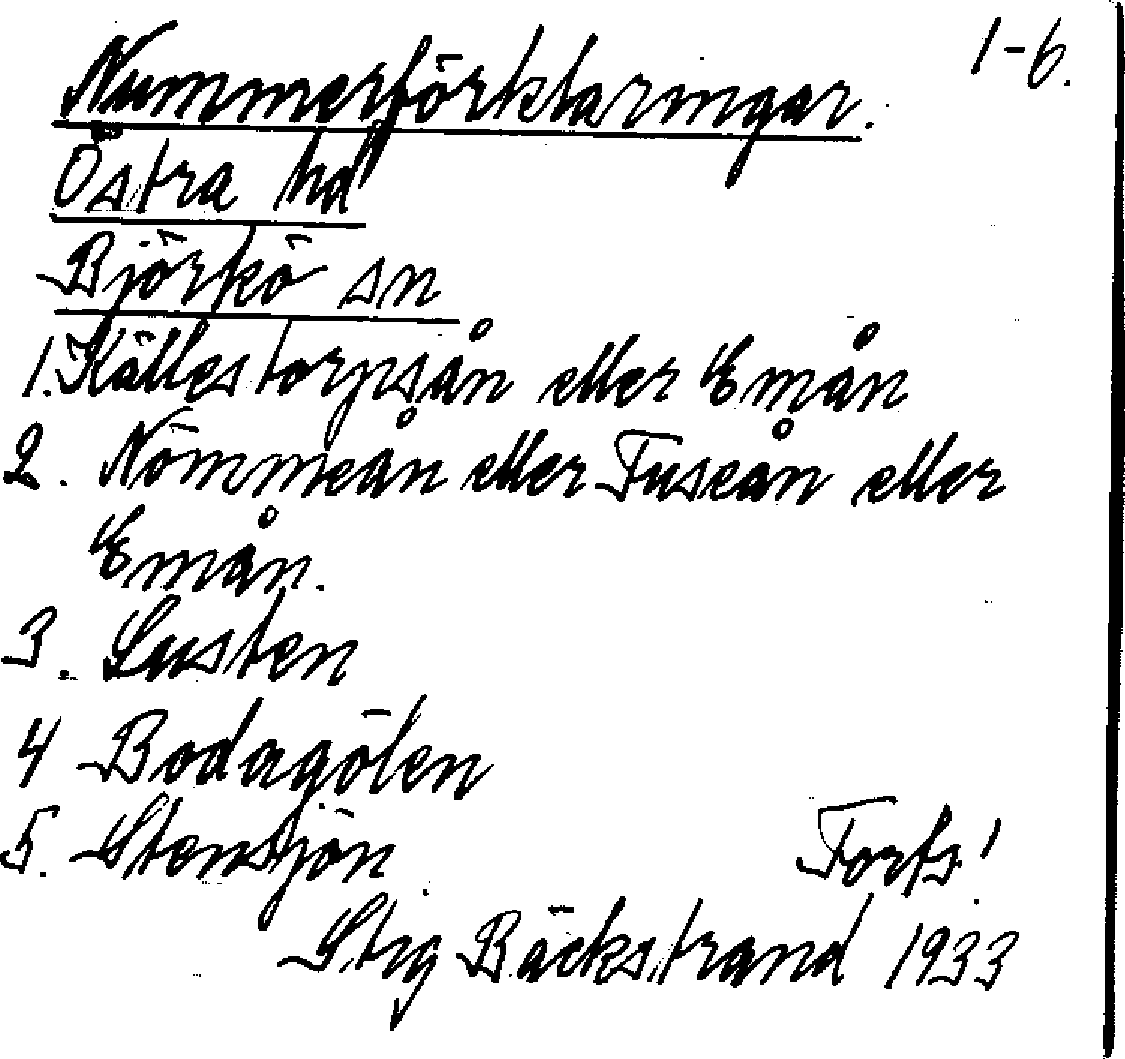 1-6.
Nummerförklaringar.
Östra hd
Björkö sn
1. Källestorpsån eller Emån
2. Nömmeån eller Fuseån eller
Emån.
3. Lusten
4 Bodagölen
5. Stensjön
Forts!
Stig Bäckstrand 1933